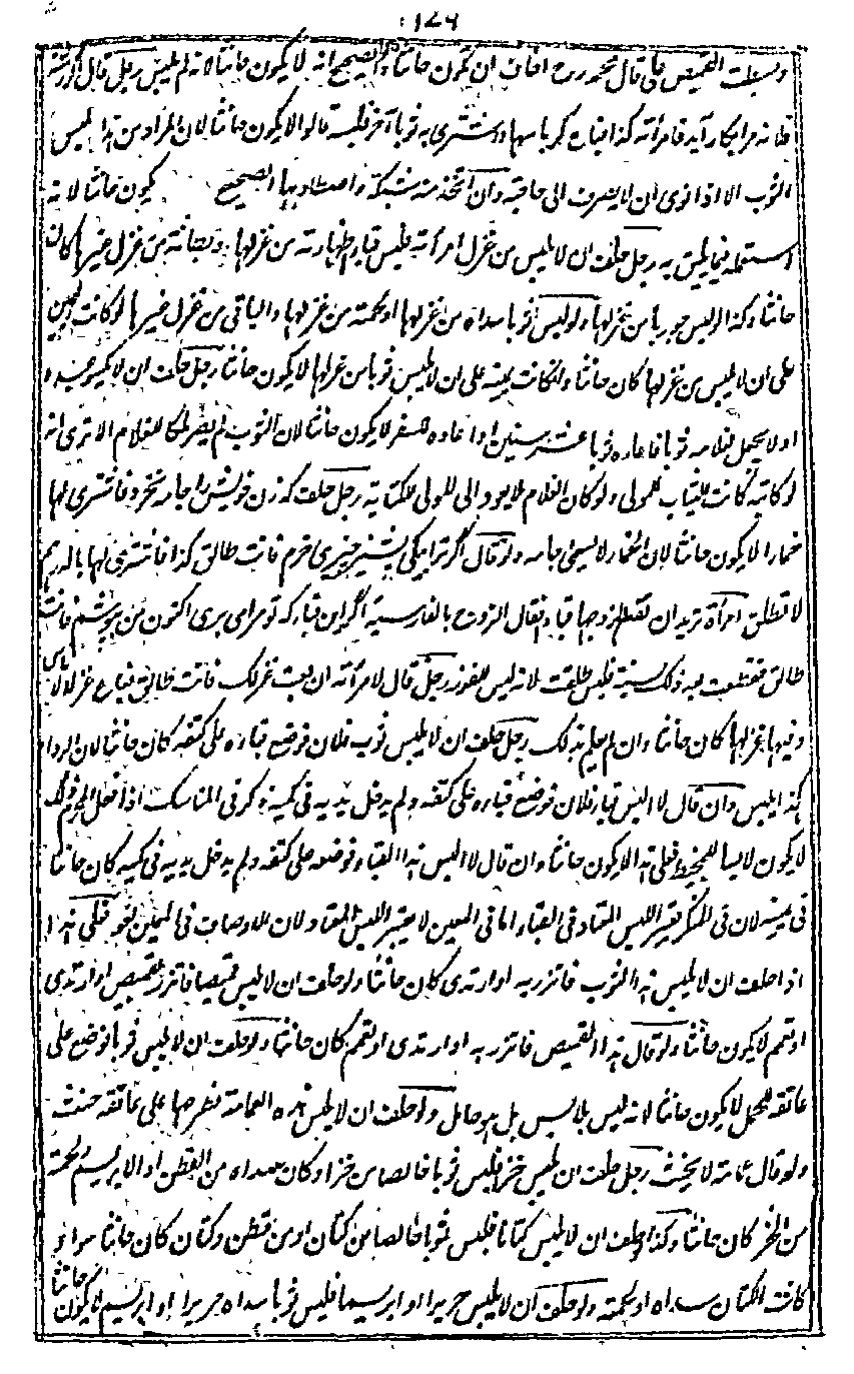 وبسطت القميص على قال محمد رح اخاف ان يكون حانثا والصحيح انه لا يكون حانثا لانه لم يلبس رجل قال
فلانه مرا بكار آيد فامرأته كذا فباع كرباسها واشترى به ثوبا آخر فلبسه قالوا لا يكون حانثا لان المراد من هذا لبس
الثوب الا اذا نوى ان لا يصرف الى حاجته وان اتخذ منه شبكة واصطاد بها الصحيح يكون حانثا لانه
استعمله فيما يليق به رجل حلف ان لا يلبس من غزل امرأته فلبس قباء ظهارته من غزلها وبطانته من غزل غيرها كان
حانثا وكذا لو لبس جوربا من غزلها ولو لبس ثوبا سداه من غزلها او لحمته من غزلها والباقي من غزل غيرها لو كانت اليمين
على ان لا يلبس من غزلها كان حانثا ولو كانت يمينه على ان لا يلبس ثوبا من غزلها لا يكون حانثا رجل حلف ان لا يكسو عبده
او لا يحمل لغلامه ثوبا فاعاره ثوبا عشر سنين اذا عاده للسفر لا يكون حانثا لان الثوب لم يصر ملكا للغلام الا ترى انه
لو كاتبه كانت الثياب للمولى ولو كان الغلام لا يعود الى المولى للكتابة رجل حلف كه زن خويش را جامه نخرد فاشترى لها
خمارا لا يكون حانثا لان الخمار لا يسمى جامه ولو قال اگر ترا بيكى پشيز چيزى خرم فانت طالق كذا فاشترى لها بالدرهم
لا تطلق امرأة تريد ان تقطع لزوجها قباء فقال الزوج بالفارسية اگر اين قباء كه تو مراى برى اكنون من پوشم فانت
طالق فقطعت بعد ذلك بسنة فلبس طلقت لانه ليس للفور رجل قال لامرأته ان لبست غزلك فانت طالق فباع غزلا لا باس
وفيها غزلها كان حانثا وان لم يعلم بذلك رجل حلف ان لا يلبس ثوب فلان فوضع قباءه على كتفه كان حانثا لان الرداء
كذا يلبس وان قال لا البس قباء فلان فوضع قباءه على كتفه ولم يدخل يديه في كميه ذكر في المناسك اذا فعل المحرم ذلك
لا يكون لابسا للمخيط فعلى هذا لا يكون حانثا وان قال لا البس هذا القباء فوضعه على كتفه ولم يدخل يديه في كميه كان حانثا
في يمينه لان في المنكر يعتبر اللبس المعتاد في القباء اما في المعين لا يعتبر اللبس المعتاد لان الاوصاف في المعين لغو فعلى هذا
اذا حلف ان لا يلبس هذا الثوب فاتزر به او ارتدى كان حانثا ولو حلف ان لا يلبس قميصا فاتزر بقميص او ارتدى
او تعمم لا يكون حانثا ولو قال هذا القميص فاتزر به او ارتدى او تعمم كان حانثا ولو حلف ان لا يلبس ثوبا فوضع على
عاتقه للحمل لا يكون حانثا لانه ليس بلابس بل هو حامل ولو حلف ان لا يلبس هذه العمامة فطرحها على عاتقه حنث
ولو قال عمامة لا يحنث رجل حلف ان لا يلبس خزا فلبس ثوبا خالصا من خز او كان سداه من القطن او الابريسم ولحمته
من الخز كان حانثا وكذا لو حلف ان لا يلبس كتانا فلبس ثوبا خالصا من كتان او من قطن وكتان كان حانثا سواء
كانت الكتان سداه او لحمته ولو حلف ان لا يلبس حريرا او ابريسما فلبس ثوبا سداه حريرا او ابريسم لا يكون حانثا